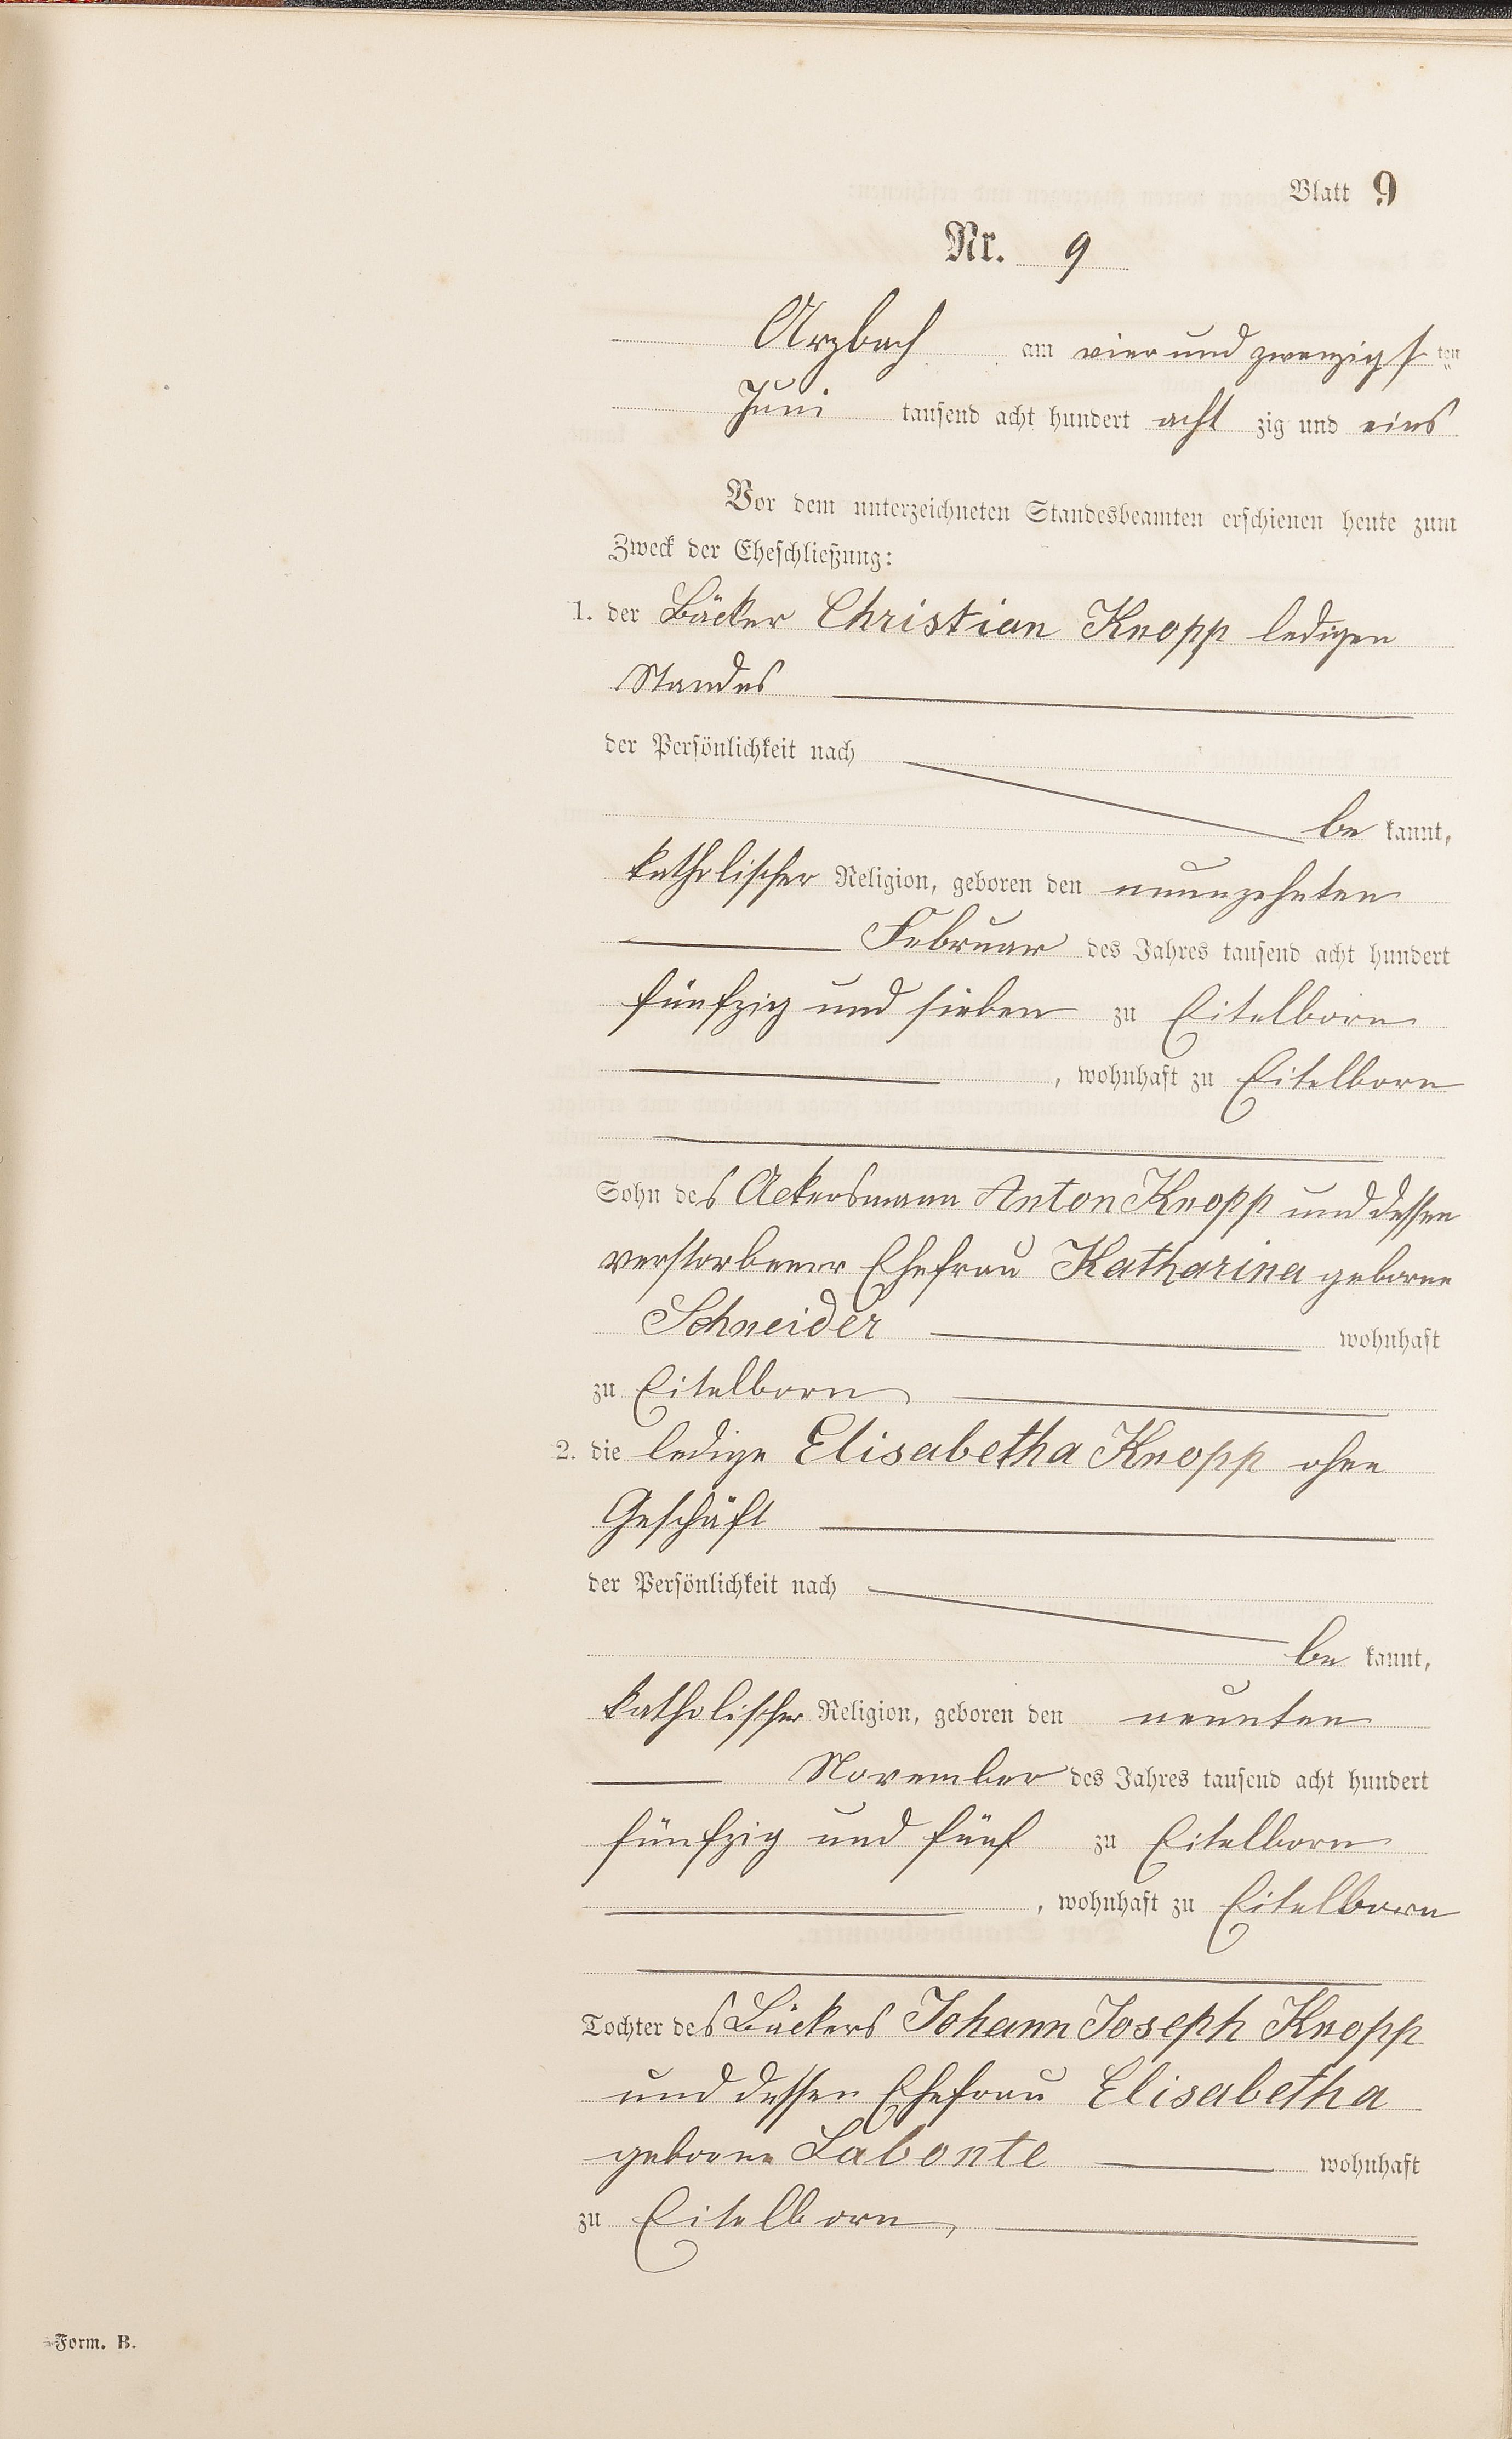 Blatt 9
Nr. 9
Arzbach am vier und zwanzigsten
Juni tausend acht hundert achtzig und eins
Vor dem unterzeichneten Standesbeamten erschienen heute zum
Zweck der Eheschließung:
1. der Bäcker Christian Knopp ledigen
Standes
der Persönlichkeit nach
bekannt,
katholischer Religion, geboren den neunzehnten
Februar des Jahres tausend acht hundert
fünfzig und sieben zu Eitelborn
, wohnhaft zu Eitelborn
Sohn des Ackersmann Anton Knopp und dessen
verstorbener Ehefrau Katharina geborne
Schneider wohnhaft
zu Eitelborn
2. die ledige Elisabetha Knopp ohne
Geschäft
der Persönlichkeit nach
bekannt,
katholischer Religion, geboren den neunten
November des Jahres tausend acht hundert
fünfzig und fünf zu Eitelborn
, wohnhaft zu Eitelborn
Tochter des Bäckers Johann Joseph Knopp
und dessen Ehefrau Elisabetha
geborne Labonte wohnhaft
zu Eitelborn
Form. B.